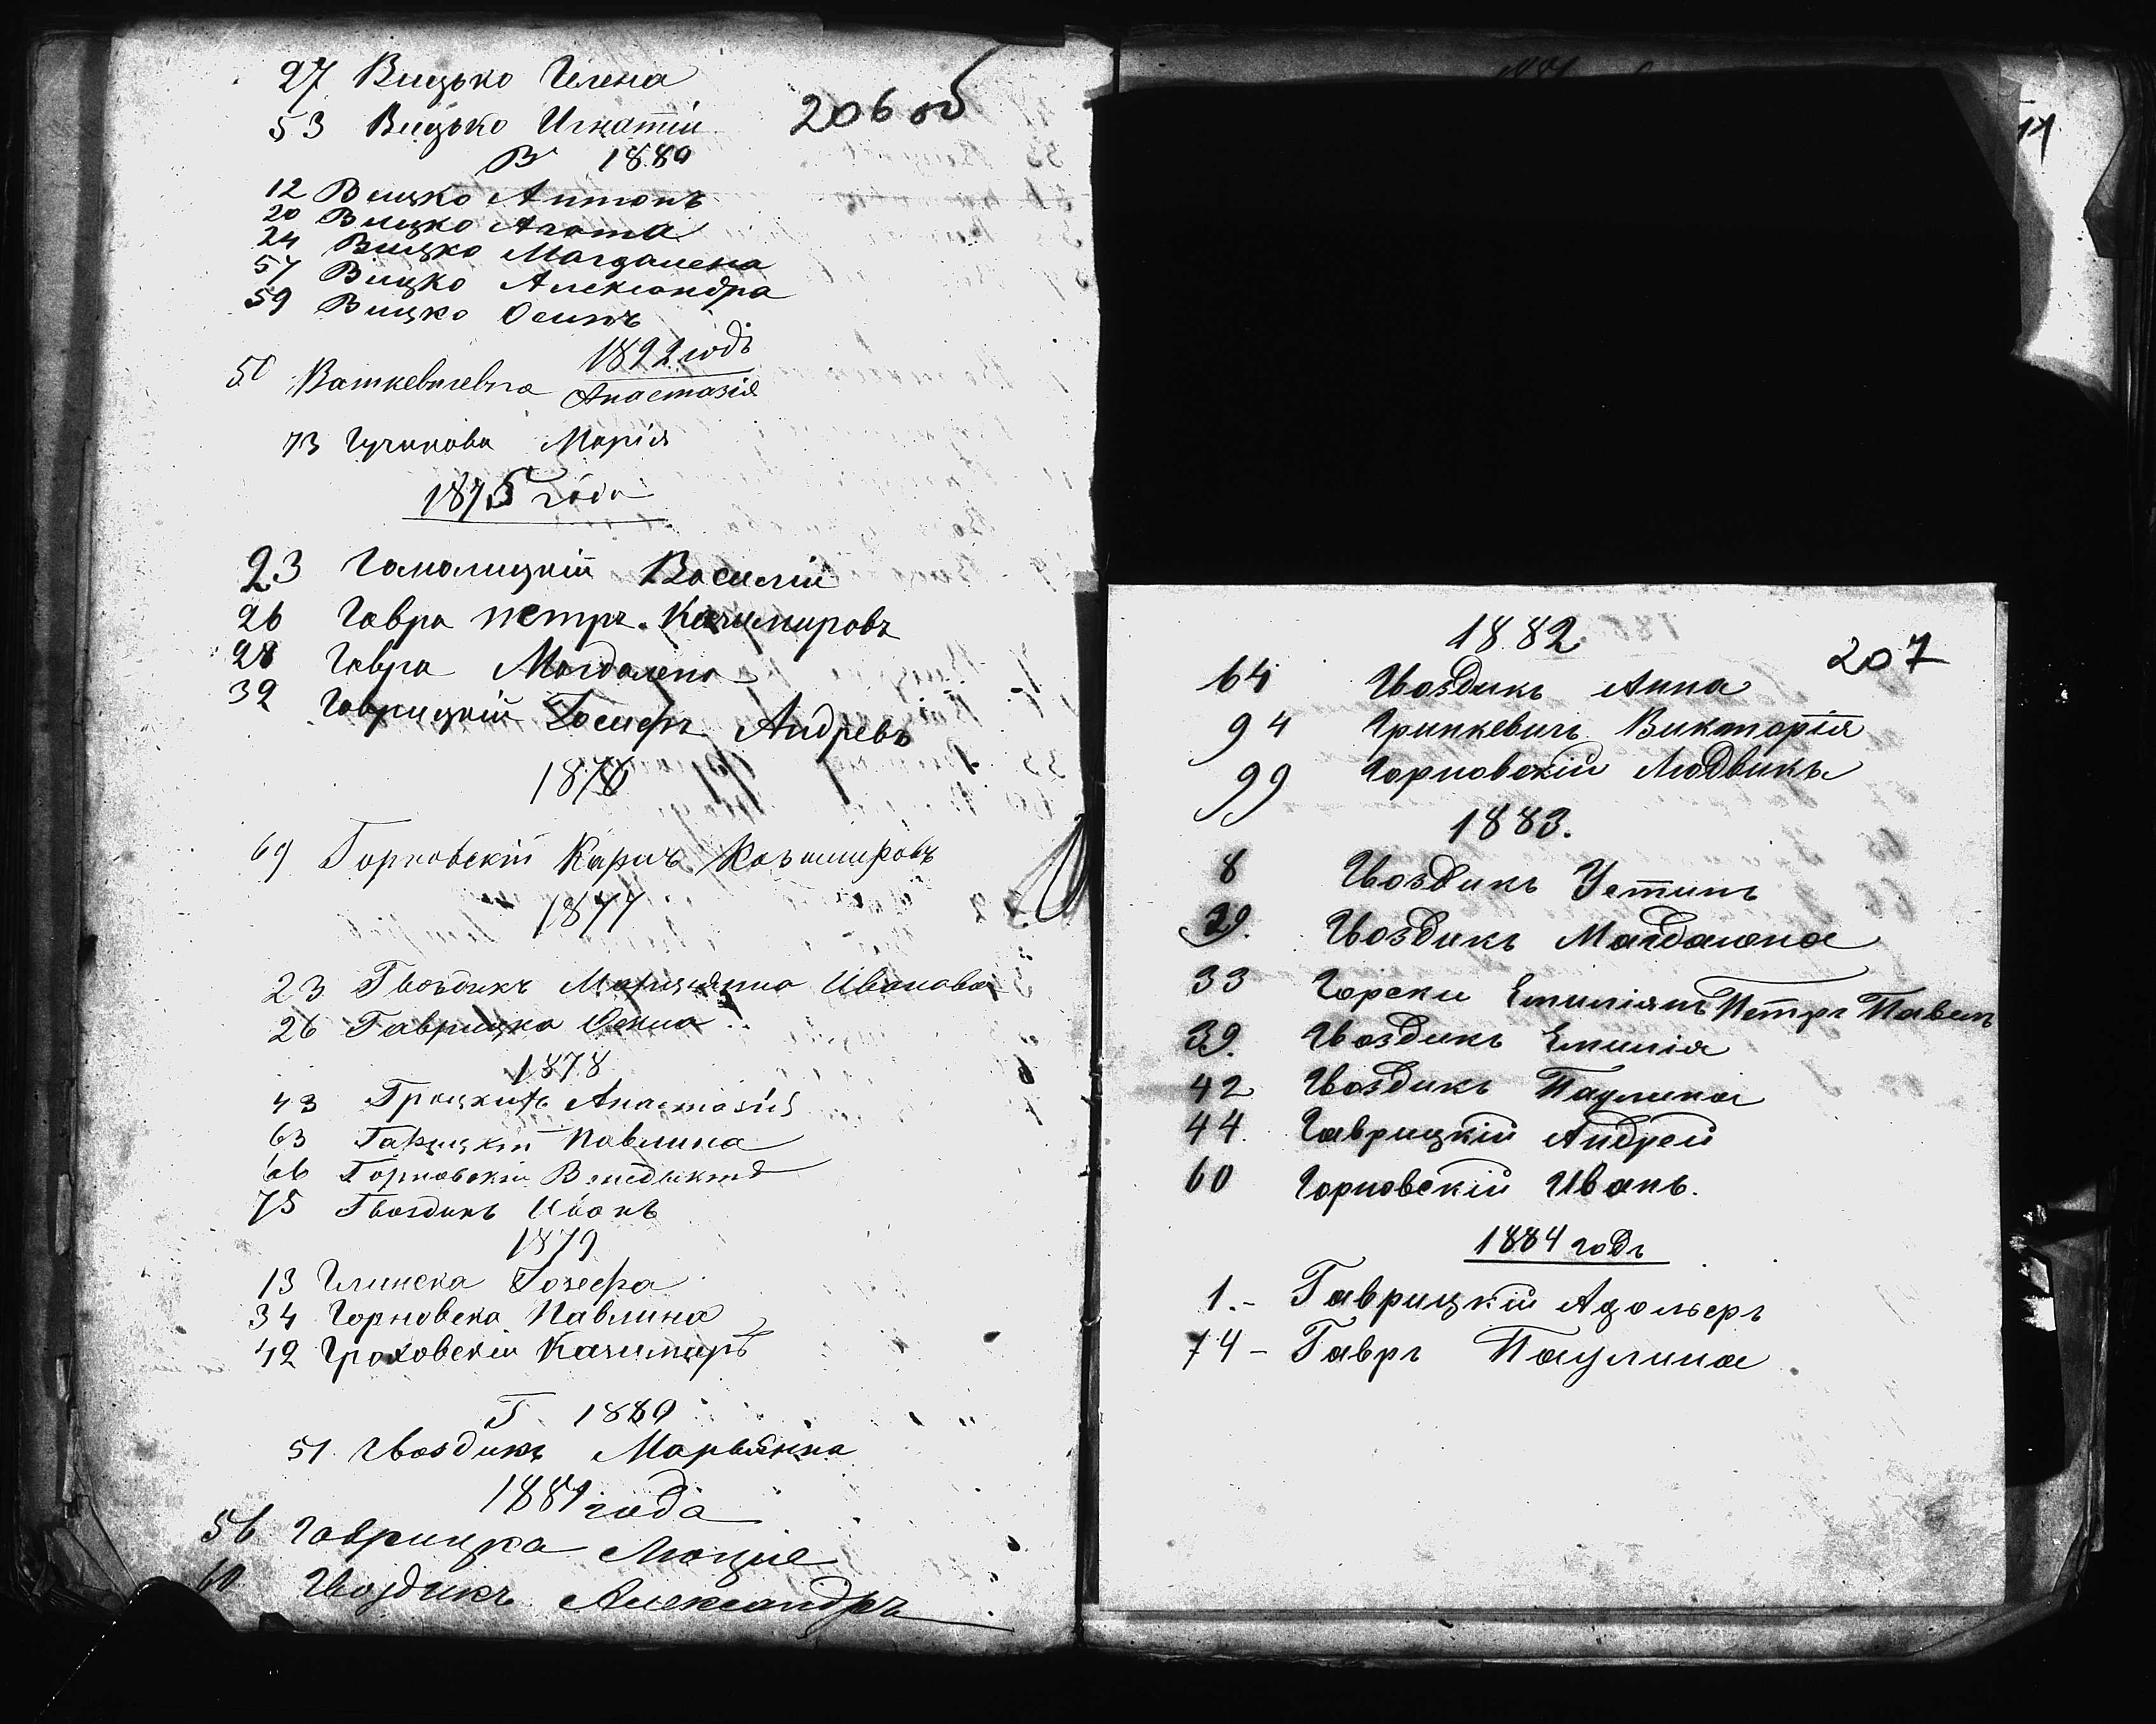 27 Вицько Елена
206 об
53 Вицько Игнатій
В 1880
12 Вицко Антонъ
20 Вицко Агата
24 Вицко Магдалена
57 Вицко Александра
59 Вицко Осипъ
1892 годъ
50 Анастазія
73 Марія
1875 года
23 Василій
26 Гавра петръ Казимировъ
28 Гавра Магдалена
39 Гаврицкій Іосифъ Андревъ
1876
69 Горновскій Казимировъ
1877
23 Гвоздикъ Марцыянна Иванова
26 Гаврицка
1878
43 Анастазія
63 Павлина
66 Горновскій Венедыктъ
75 Гвоздикъ Иванъ
1879
13 Глинска Іозефа
34 Горновска Павлина
42 Гроховскій Казимиръ
Г 1880
51. Гвоздикъ Марьянна
1881 года
56 Гаврицка Люція
60 Гвоздикъ Александръ
1882.
207
64 Гвоздикъ Анна
94 Гринкевичъ Викторія
99 Горновскій Людвикъ
1883.
8 Гвоздикъ Устинъ
29. Гвоздикъ Магдалена
33 Горски Емиліянъ Петръ Павелъ
39. Гвоздикъ Емилія
42 Гвоздикъ Паулина
44. Гаврицкій Андрей
60 Горновскій Иванъ.
1884 годъ
1.- Гаврицкій Адольфъ
74 - Гавръ Паулина